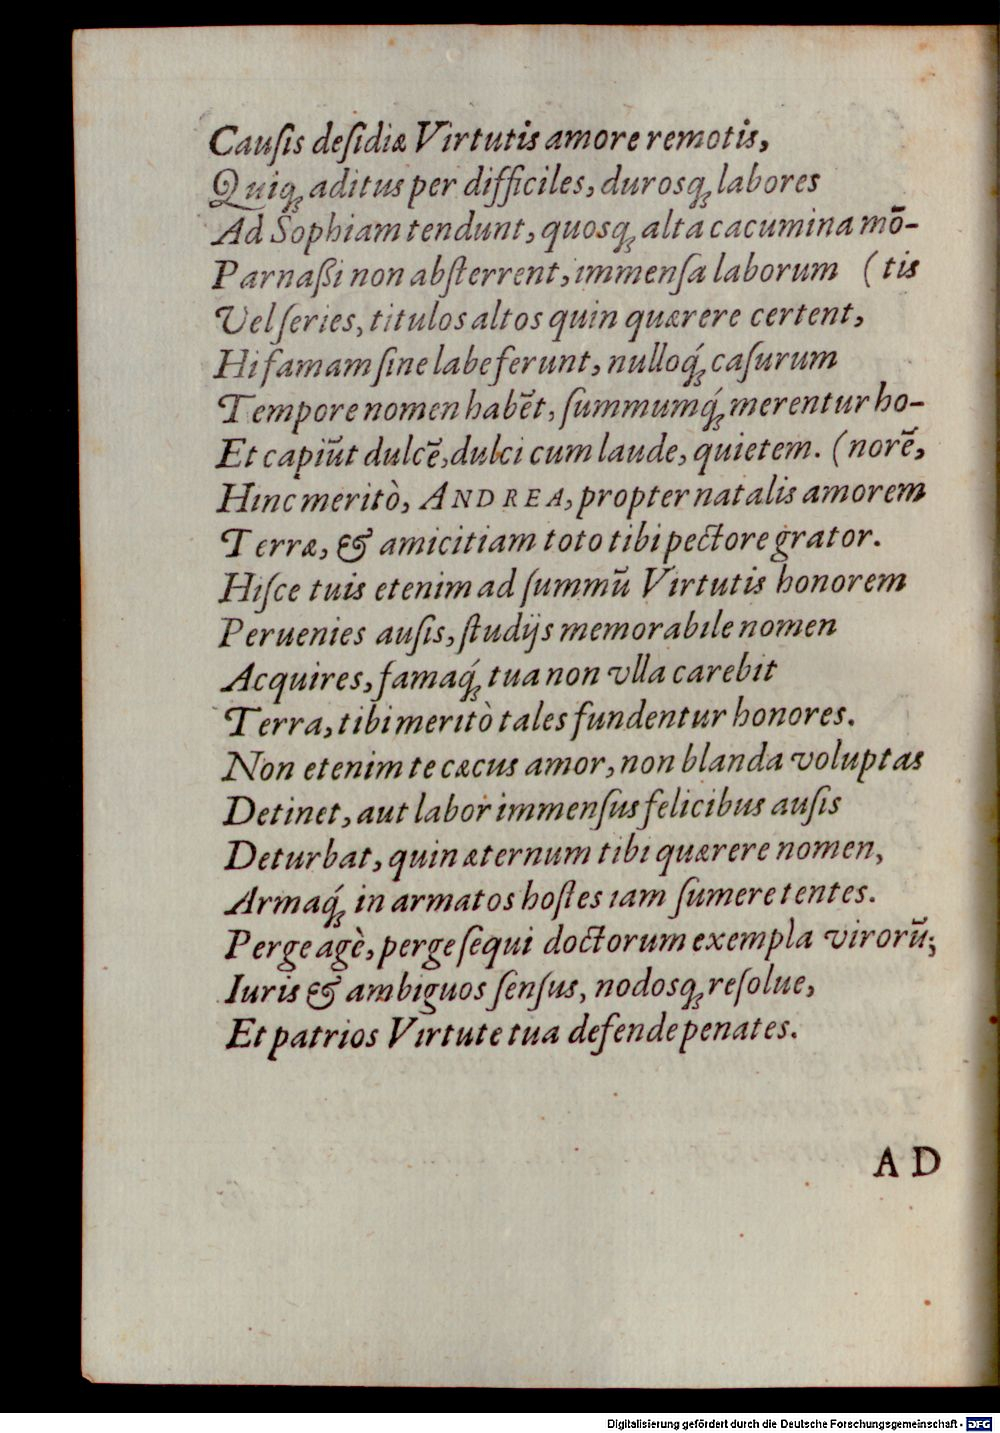 Cauſis deſidiæ Virtutis amore remotis,
Quiq́ꝫ aditus per difficiles, durosqꝫ labores
Ad Sophiam tendunt, quosqꝫ alta cacumina mō-
Parnaßi non abſterrent, immenſa laborum (tis
Vel ſeries, titulos altos quin quærere certent,
Hi famam ſine labe ferunt, nulloq́ꝫ caſurum
Tempore nomen habēt, ſummumq́ꝫ merentur ho-
Et capiūt dulcē, dulci cum laude, quietem. (norē,
Hinc meritò, ANDREA, propter natalis amorem
Terræ, & amicitiam toto tibi pectore grator.
Hiſce tuis etenim ad ſummū Virtutis honorem
Peruenies auſis, ſtudijs memorabile nomen
Acquires, famaq́ꝫ tua non vlla carebit
Terra, tibi meritò tales fundentur honores.
Non etenim te cæcus amor, non blanda voluptas
Detinet, aut labor immenſus felicibus auſis
Deturbat, quin æternum tibi quærere nomen,
Armaq́ꝫ in armatos hoſtes iam ſumere tentes.
Perge agè, perge ſequi doctorum exempla virorū;
Iuris & ambiguos ſenſus, nodosqꝫ reſolue,
Et patrios Virtute tua defende penates.
AD
Digitalisierung gefördert durch die Deutsche Forschungsgemeinschaft - DFG